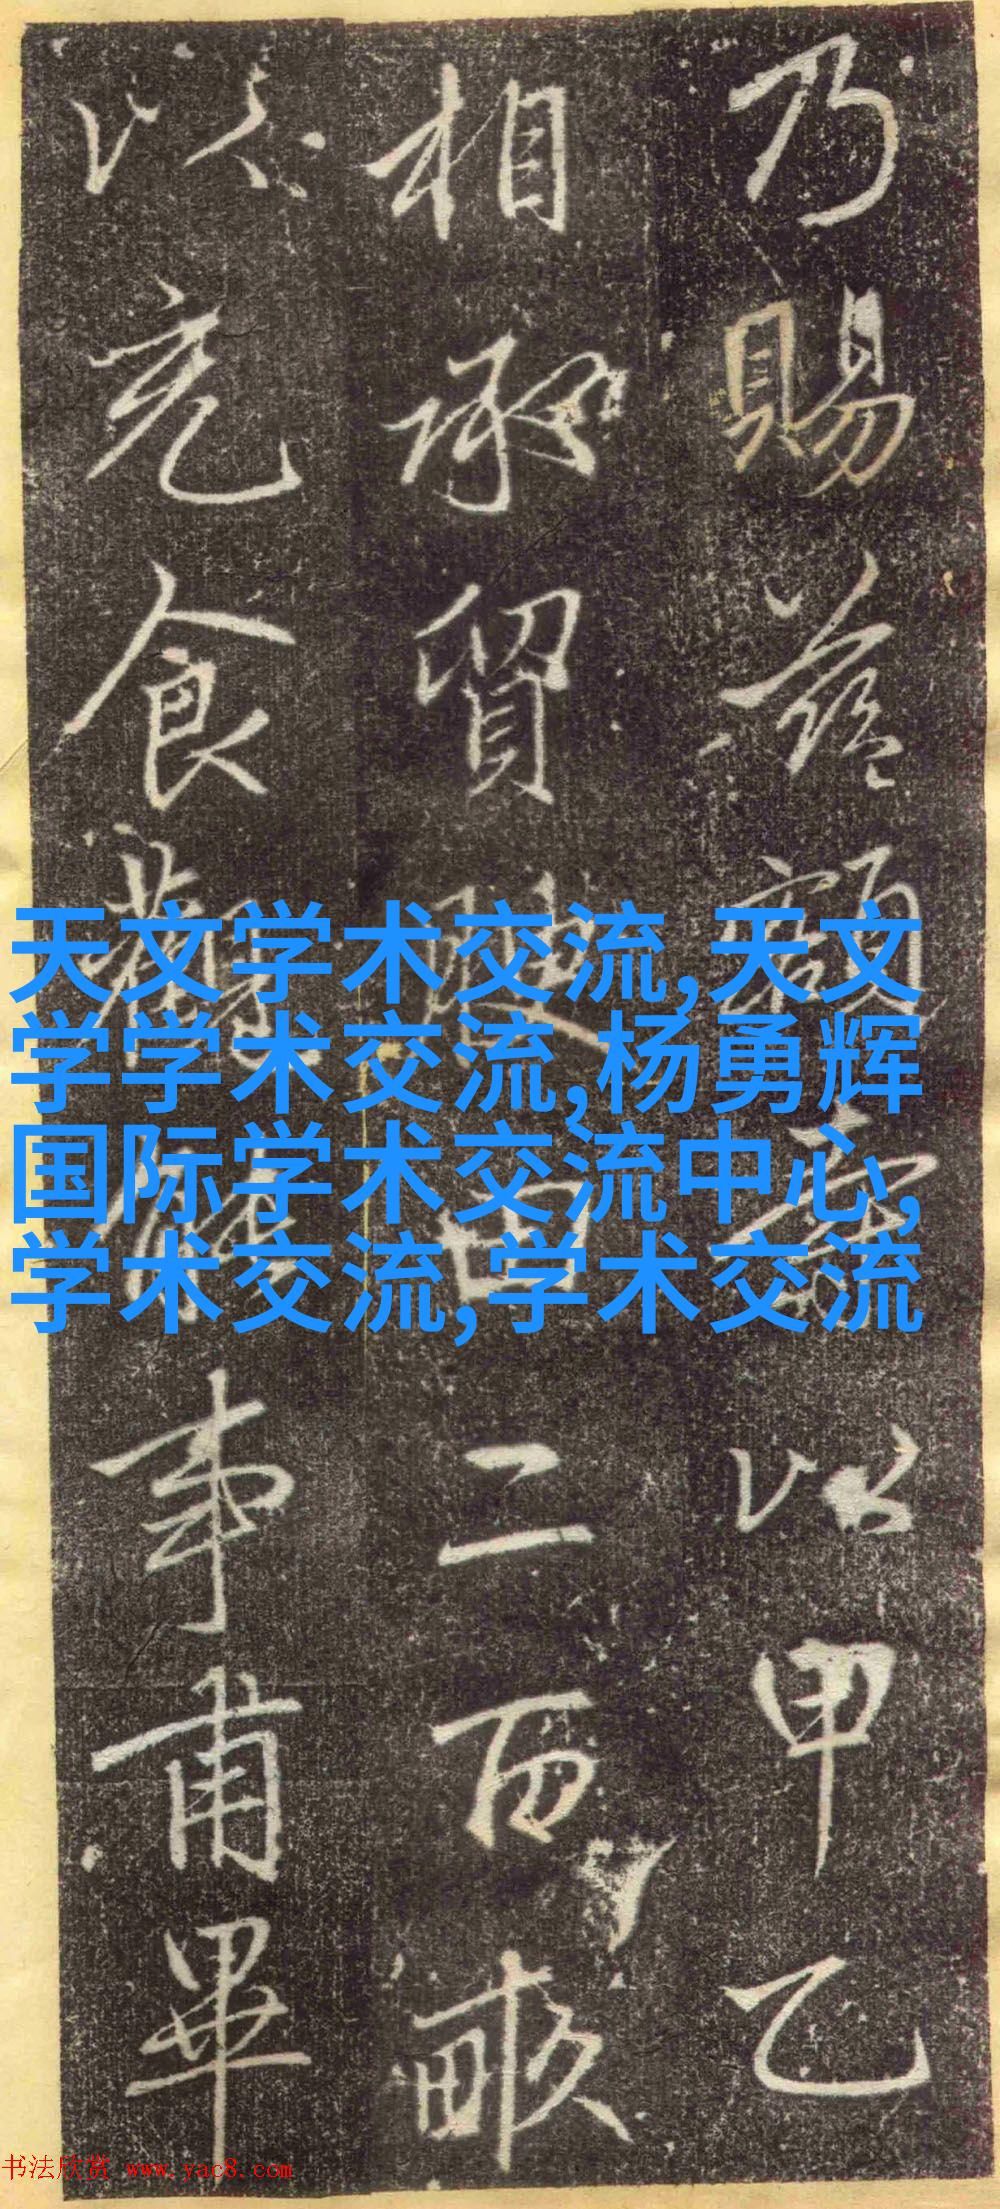 乃賜兹額需以甲乙
相承貿田二百畝
以充食事甫畢
天文学术交流,天文
学学术交流,杨勇辉
国际学术交流中心,
学术交流,学术交流
书法欣赏 www.yac8.com